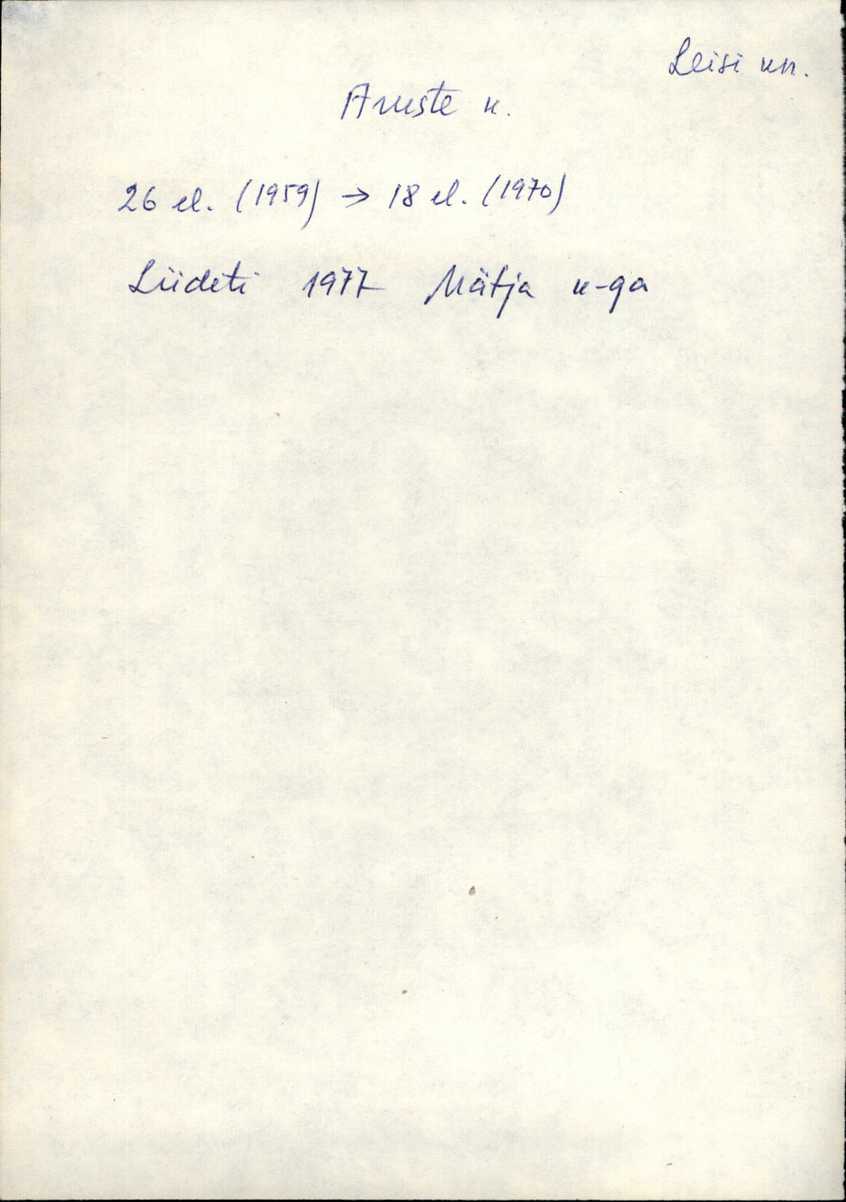 Leisi kn.
Aruste k.
26 el. (1959) → 18 el. (1970)
Liideti 1977 Mätja k-ga